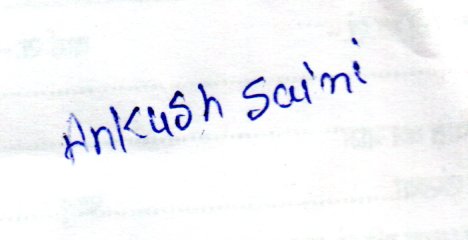 Ankush Saini